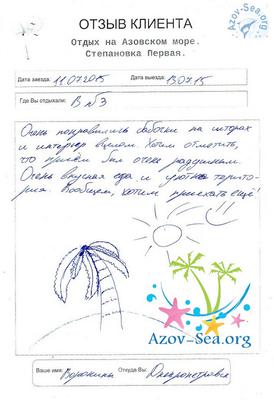 Azov-Sea.org
ОТЗЫВ КЛИЕНТА
Отдых на Азовском море.
Степановка Первая.
Дата заезда: 11.07.2015 Дата выезда: 13.07.15
Где Вы отдыхали: В №3
Очень понравились бабочки на шторах
и интерьер в целом. Хотим отметить,
что прием был очень радушным.
Очень вкусная еда и уютная террито-
рия. Вообщем, хотим приехать ещё!
Azov-Sea.org
Ваше имя: Воронины Откуда Вы: Днепропетровск